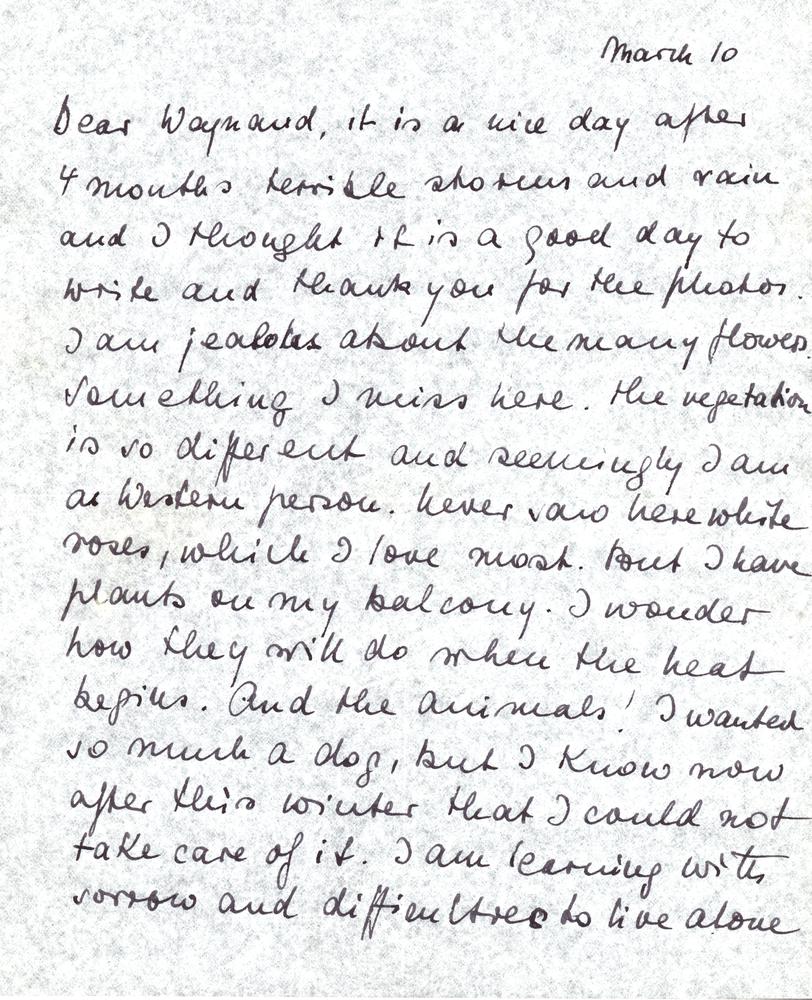 March 10
Dear Waynand, it is a nice day after
4 months terrible storms and rain
and I thought it is a good day to
write and thank you for the photos.
I am jealous about the many flowers.
Something I miss here. The vegetation
is so different and seemingly I am
a Western person. Never saw here white
roses, which I love most. But I have
plants on my balcony. I wonder
how they will do when the heat
begins. And the animals! I wanted
so much a dog, but I know now
after this winter that I could not
take care of it. I am learning with
sorrow and difficulties to live alone